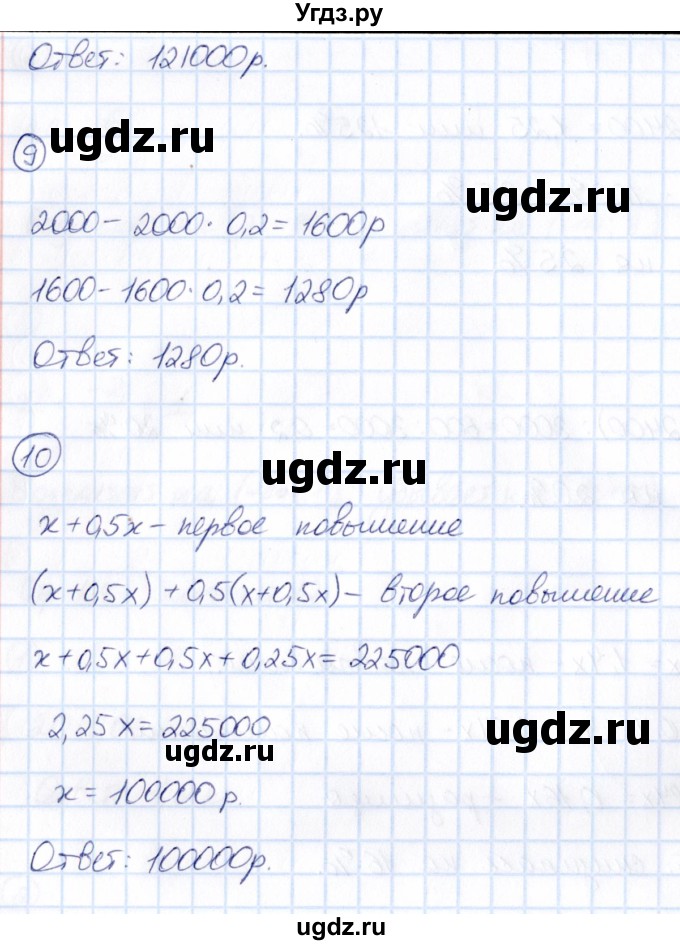 Угдз.ру
Ответ: 121000р.
9
ugdz.ru
ugdz.ru
2000 - 2000 · 0,2 = 1600р
1600 - 1600 · 0,2 = 1280р
Ответ: 1280р.
10
ugdz.ru
x + 0,5x - первое повышение
(x + 0,5x) + 0,5(x + 0,5x) - второе повышение
x + 0,5x + 0,5x + 0,25x = 225000
2,25x = 225000
ugdz.ru
ugdz.ru
x = 100000р.
Ответ: 100000р.
ugdz.ru